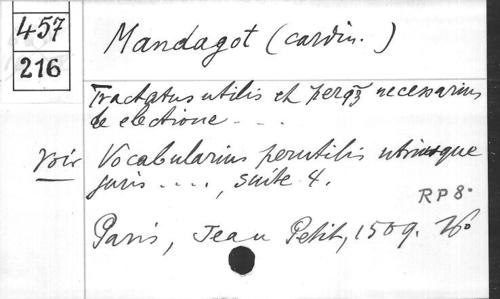 457
216
Mandagot (cardin.)
Tractatus utilis et perqȝ necessarius
de electione - - .
voir Vocabularius perutilis utriusque
juris ...., suite 4.
RP 8°
Paris, Jean Petit, 1509.